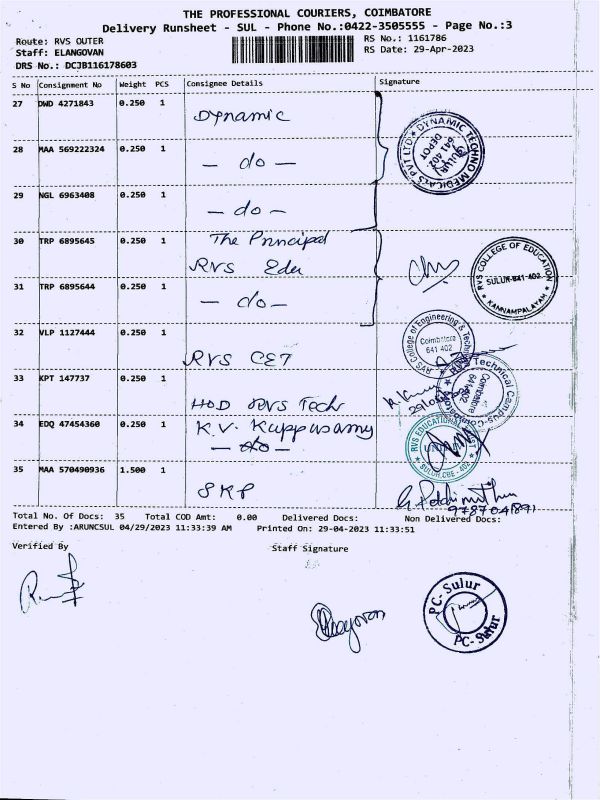 THE PROFESSIONAL COURIERS, COIMBATORE
Delivery Runsheet - SUL - Phone No.:0422-3505555 - Page No.:3
Route: RVS OUTER
Staff: ELANGOVAN
DRS No.: DCJB116178603
RS No.: 1161786
RS Date: 29-Apr-2023
S No Consignment No Weight PCS Consignee Details Signature
27 DWD 4271843 0.250 1 Dynamic
28 MAA 569222324 0.250 1 - do -
DYNAMIC TECHNO MEDICALS PVT LTD
SULUR
641 402
DEPOT
29 NGL 6963408 0.250 1 - do -
30 TRP 6895645 0.250 1 The Principal
RVS Edu
RVS COLLEGE OF EDUCATION
SULUR-641 402.
KANNAMPALAYAM
31 TRP 6895644 0.250 1 - do -
32 VLP 1127444 0.250 1 RVS CET
RVS College of Engineering &
Coimbatore
641 402
33 KPT 147737 0.250 1 HOD RVS Tech
Technical Campus-Coimbatore
Coimbatore
641 402
34 EDQ 47454360 0.250 1 K.V. Kuppusamy
- do -
RVS EDUCATIONAL
SULUR, CBE - 402
35 MAA 570490936 1.500 1 SKP
9787041871
Total No. Of Docs: 35 Total COD Amt: 0.00 Delivered Docs: Non Delivered Docs:
Entered By :ARUNCSUL 04/29/2023 11:33:39 AM Printed On: 29-04-2023 11:33:51
Verified By Staff Signature
PC- Sulur
PC- Sulur